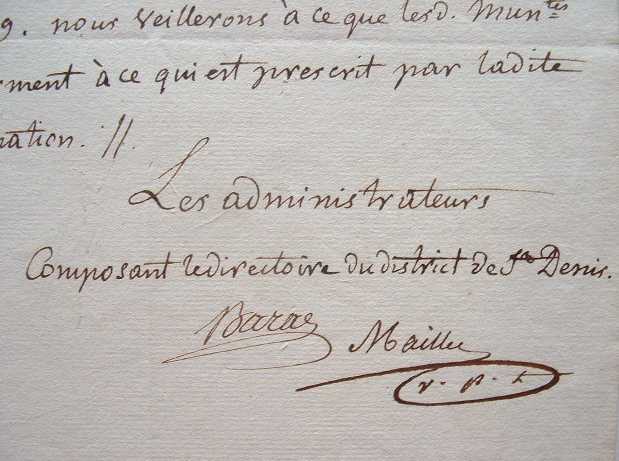 9. nous veillerons à ce que lesd. Mun.tés
rment à ce qui est prescrit par ladite
ation. //.
Les administrateurs
Composant le directoire du district de St Denis.
Baras Maillu
v. p. t